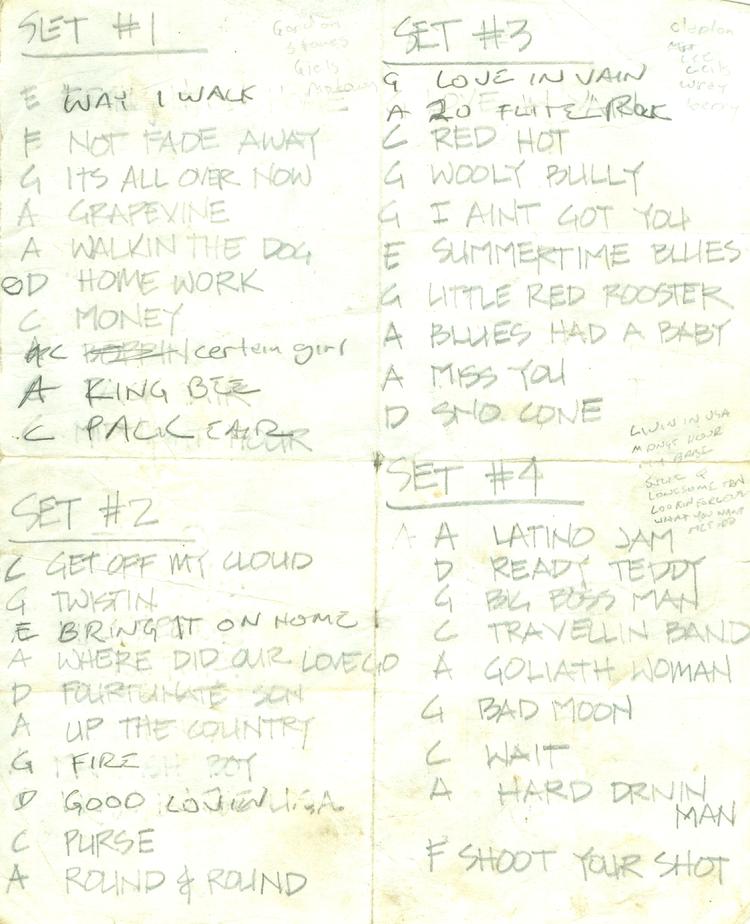 SET #1
Gordon
Stones
Geils
Motown
E WAY I WALK
F NOT FADE AWAY
G ITS ALL OVER NOW
A GRAPEVINE
A WALKIN THE DOG
D HOME WORK
C MONEY
C certein girl
A KING BEE
C PACK
SET #2
C GET OFF MY CLOUD
G TWISTIN
E BRING IT ON HOME
A WHERE DID OUR LOVE GO
D FOURTUNATE SON
A UP THE COUNTRY
G FIRE
D GOOD LOVIN
C PURSE
A ROUND & ROUND
SET #3
Clapton
Lee
Geils
Wray
berry
G LOVE IN VAIN
A 20 FLITE ROCK
C RED HOT
G WOOLY BULLY
G I AINT GOT YOU
E SUMMERTIME BLUES
G LITTLE RED ROOSTER
A BLUES HAD A BABY
A MISS YOU
D SNO CONE
LIVIN IN USA
HOUR
MY BABE
LONESOME
WHAT YOU WANT
SET #4
A A LATINO JAM
D READY TEDDY
G BIG BOSS MAN
C TRAVELLIN BAND
A GOLIATH WOMAN
G BAD MOON
C WAIT
A HARD DRNIN
MAN
F SHOOT YOUR SHOT